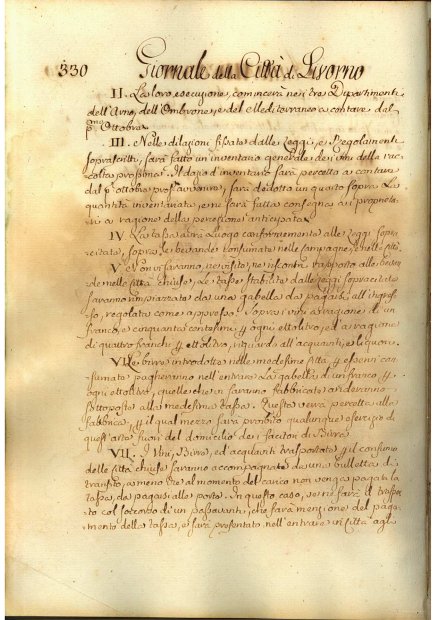 330 Giornale della Città di Livorno
II. La loro esecuzione, comincerà nei tre Dipartimenti
dell'Arno, dell'Ombrone, e del Mediterraneo a contare dal
pmo Ottobre.
III. Nelle dilazioni fissate dalle Leggi, e Regolamenti
soprascritti, sarà fatto un inventario generale dei vini della rac-
colta prossima. Il dazio d'inventario sarà percetto a contare
dal po ottobre prossº avvenire, sarà dedotto un quarto sopra la
quantità inventariata, e ne sarà fatta consegna ai proprieta-
ri a ragione della percezione anticipata.
IV. La tassa avrà luogo conformemente alle Leggi sopra-
citate, sopra le bevande consumate nelle campagne, e nelle Città.
V. Non vi saranno nè visite, nè riscontri rapporto alle bevan-
de nelle Città chiuse. Le tasse stabilite dalle Leggi sopracitate
saranno rimpiazzate da una gabella da pagarsi all'ingres-
so, regolata come appresso. Sopra i vini a ragione di un
franco, e cinquanta centesimi per ogni ettolitro, ed a ragione
di quattro franchi per ettolitro, riguardo all'acquavite, e liquori.
VI. Le birre introdotte nelle medesime Città per esservi con-
sumate pagheranno nell'entrare la gabella di un franco, per
ogni ettolitro, quelle che vi saranno fabbricate anderanno
sottoposte alla medesima tassa. Questa verrà percetta alla
fabbrica, per il qual mezzo sarà proibito qualunque esercizio di
quest'arte fuori del domicilio dei facitori di Birra.
VII. I Vini, Birre, ed acquaviti trasportate per il consumo
delle Città chiuse saranno accompagnate da una bulletta di
transito, a meno che al momento del carico non venga pagata la
tassa, da pagarsi alle porte. In questo caso, se ne farà il traspor-
to col soccorso di un passavanti, che farà menzione del paga-
mento della tassa, e sarà presentato nell'entrare in Città agli